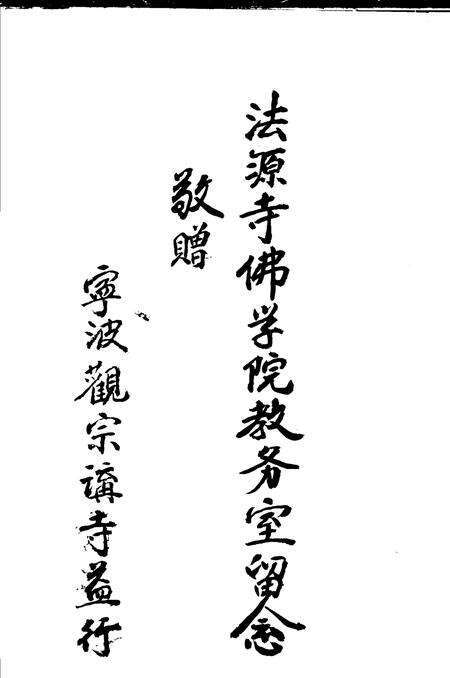 法源寺佛学院教务室留念
敬赠
寧波觀宗講寺益行